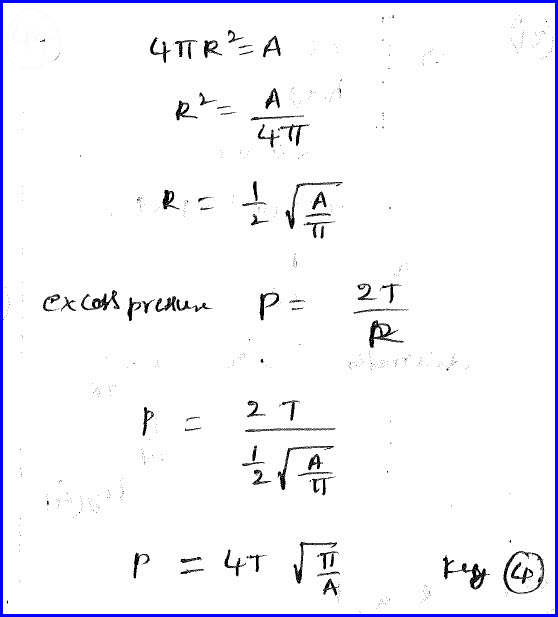 4πR² = A
R² = A/4π
R = 1/2 √(A/π)
excess pressure P = 2T/R
P = 2T / (1/2 √(A/π))
P = 4T √(π/A) Key (4)